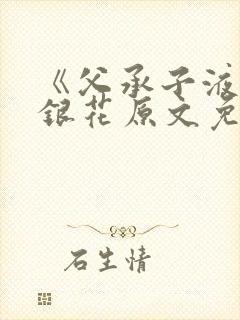 《父承子液
銀花原文免
石生情